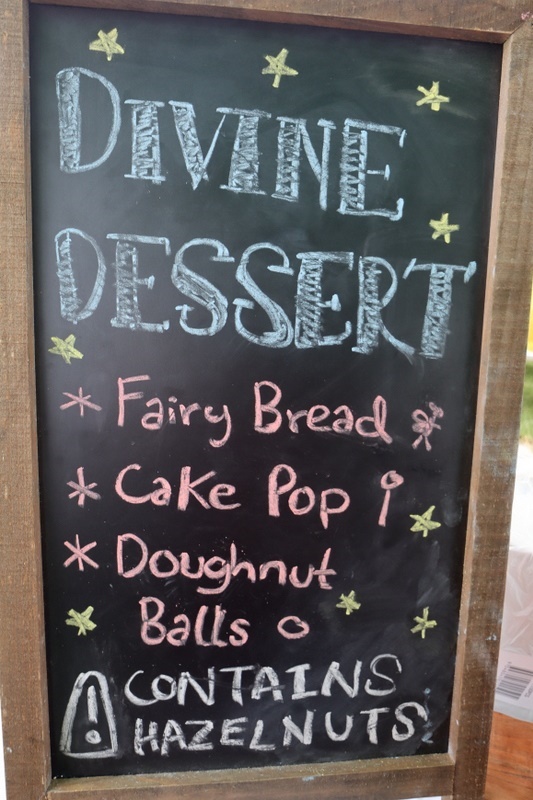 DIVINE
DESSERT
* Fairy Bread
* Cake Pop
* Doughnut
Balls
! CONTAINS
HAZELNUTS